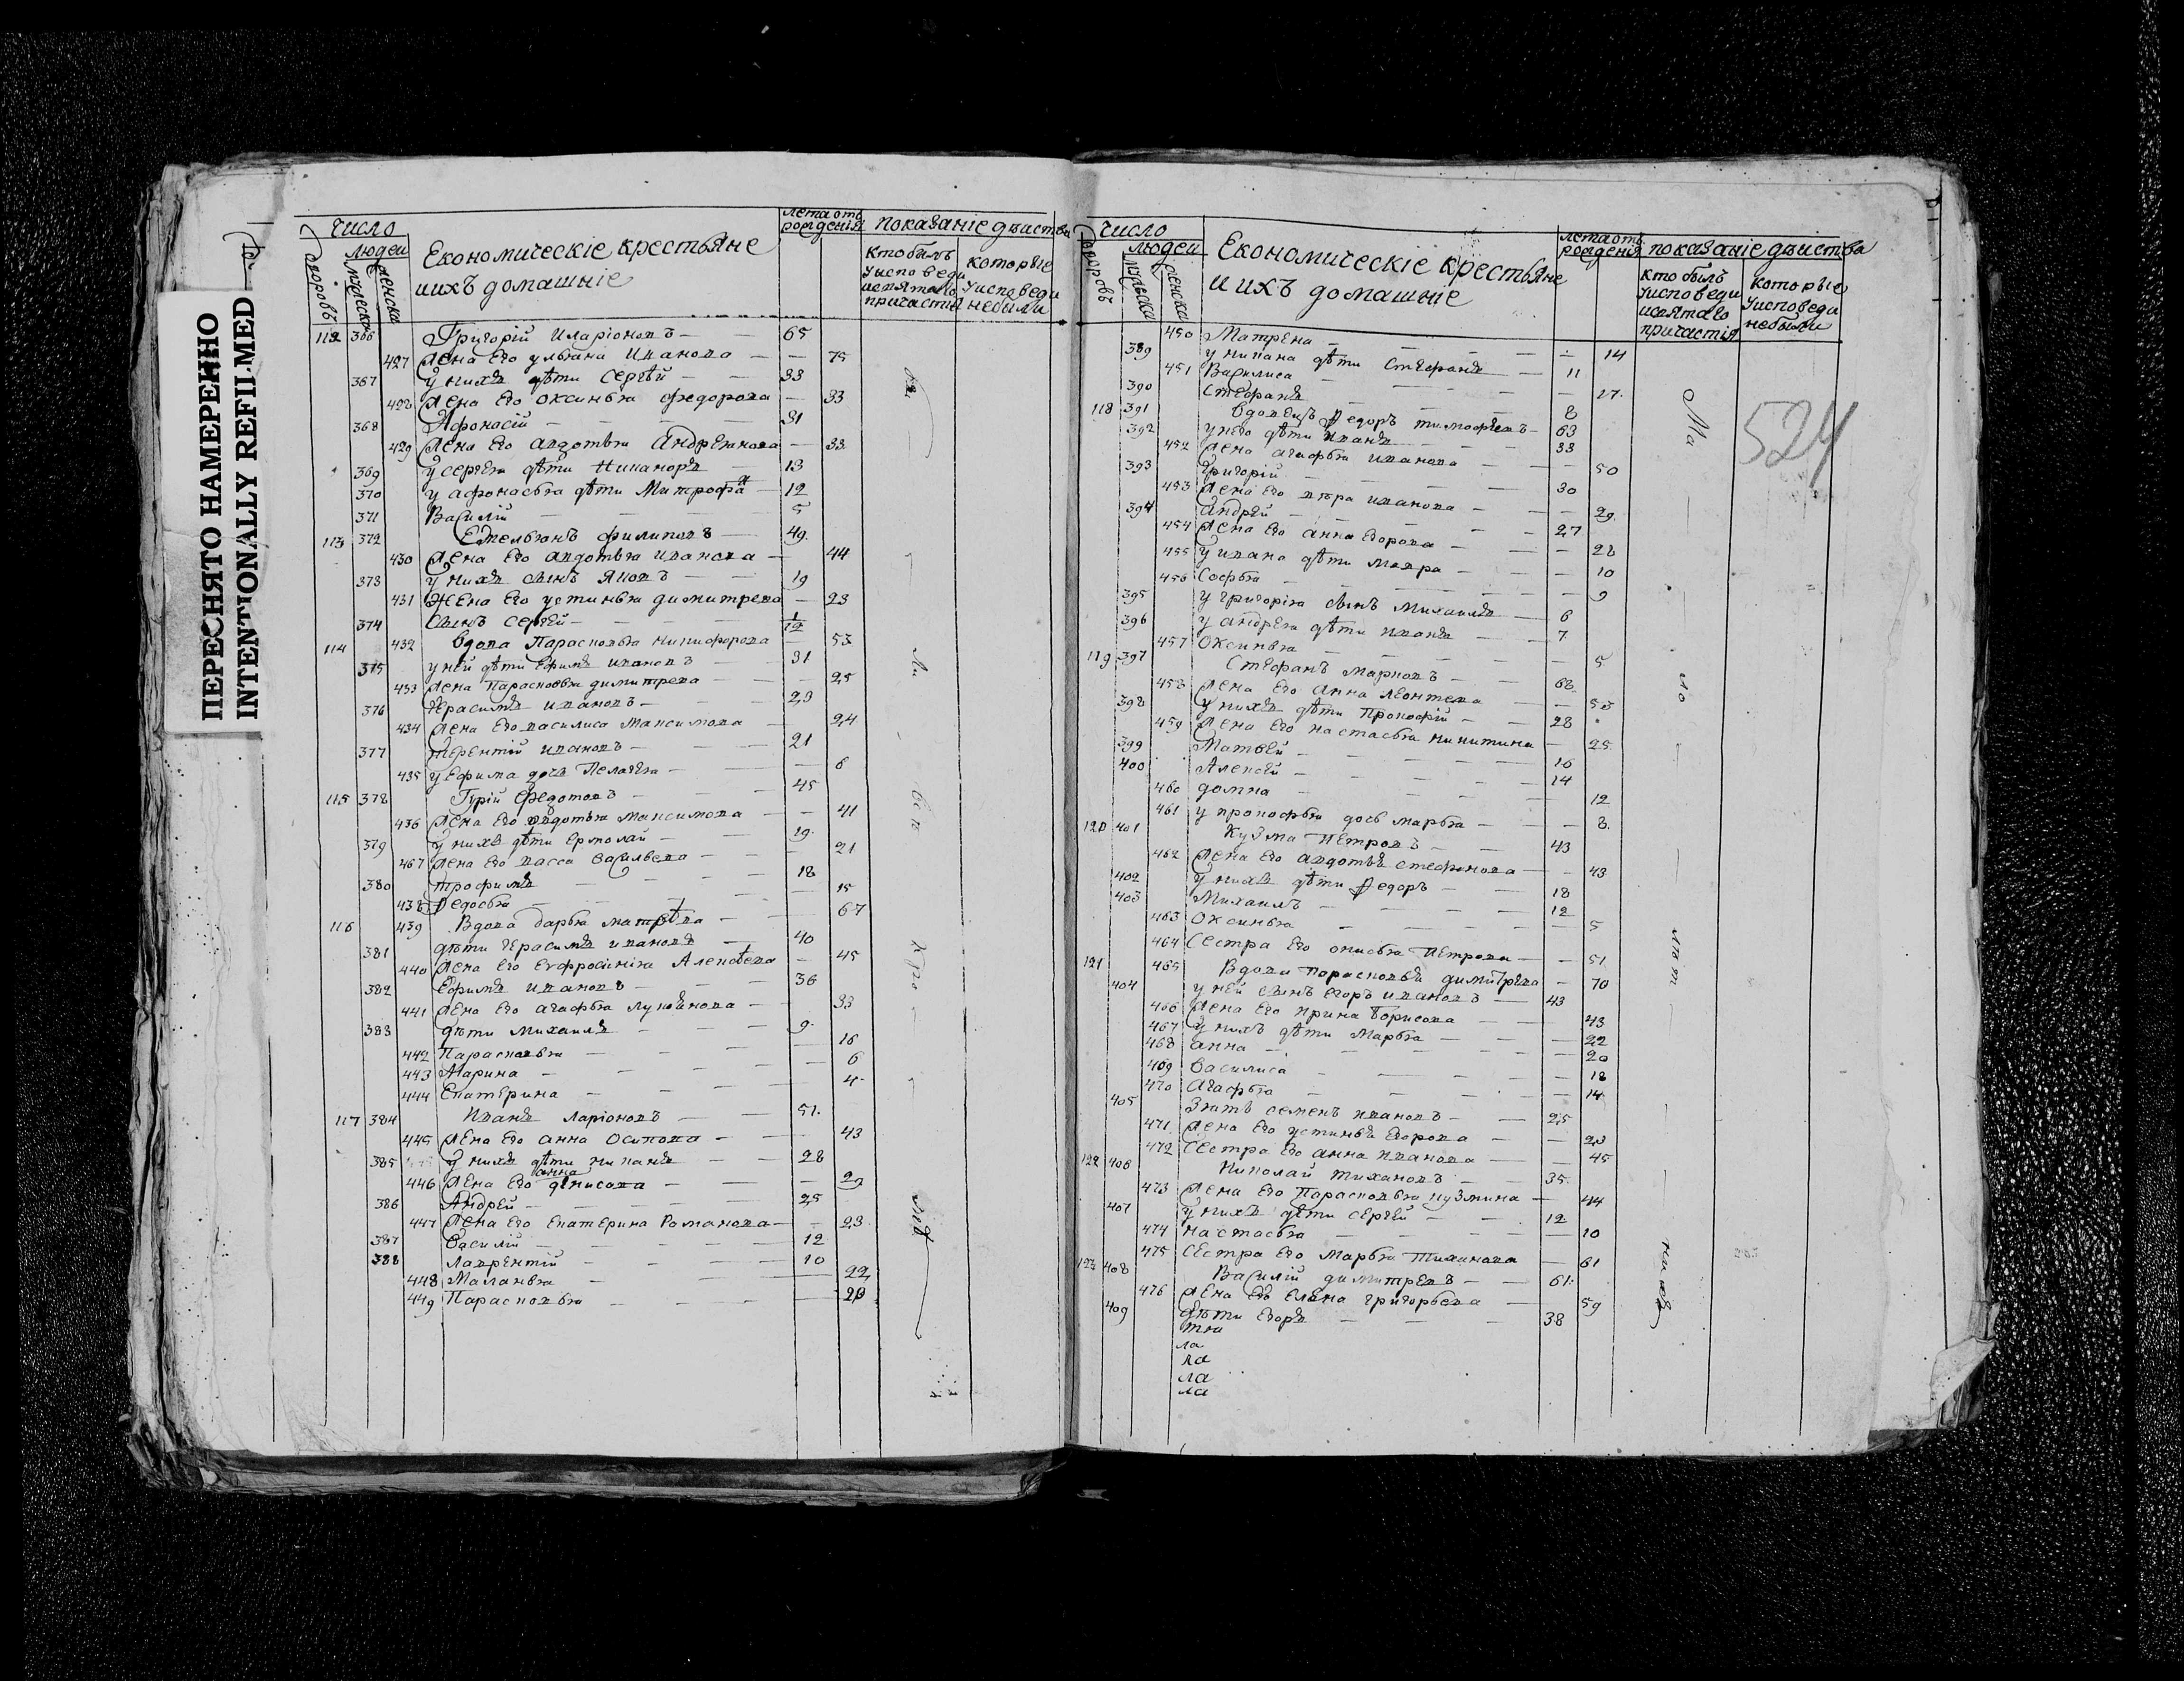 ПЕРЕСНЯТО НАМЕРЕННО
INTENTIONALLY REFILMED
число
людей
дворовъ
мужеска
женска
Економическіе крестьяне
и ихъ домашніе
лета отъ
рожденія
показаніе дѣиства
кто былъ
у исповеди
и святаго
причастія
которые
у исповеди
небыли
112 366 Григорій Иларіоновъ 65
427 Жена его ульяна Иванова 75
367 у нихъ дѣти Сергѣй 33
428 Жена его Оксинья федорова 33
368 Афонасій 31
429 Жена его авдотья Андреянова 33
369 у сергея дѣти Никаноръ 13
370 у афонасья дѣти Митрофа н 12
371 Василій 5
113 372 Емельянъ филиповъ 49
430 Жена его авдотья иванова 44
373 у нихъ сынъ Яковъ 19
431 Жена его устинья димитрева 23
374 Сынъ сергей 1/12
114 432 вдова Парасковья никифорова 53
375 у ней дѣти Ефимъ ивановъ 31
433 Жена Парасковья димитрева 25
376 Герасимъ ивановъ 23
434 Жена его василиса максимова 24
377 терентій ивановъ 21
435 у Ефима дочь Пелагея 6
115 378 Гурій Федотовъ 45
436 Жена его авдотья максимова 41
379 у нихъ дѣти Ермолай 19
437 Жена его васса васильева 21
380 трофимъ 18
438 Федосья 15
116 439 Вдова дарья матвѣва 67
381 дѣти Герасимъ ивановъ 40
440 Жена его Евфросинія Алексѣева 45
382 Ефимъ ивановъ 36
441 Жена его агафья лукоянова 33
383 дѣти михаилъ 9
442 Парасковья 16
443 Марина 6
444 Екатерина 4
117 384 Иванъ ларіоновъ 51
445 Жена его анна Осипова 43
385 у нихъ дѣти никанъ 28
анна
446 Жена его денисова 29
386 Андрей 25
447 Жена его Екатерина Романова 23
387 Василій 12
388 лаврентій 10
448 Маланья 22
449 Парасковья 20
число
людей
дворовъ
мужеска
женска
Економическіе крестьяне
и ихъ домашніе
лета отъ
рожденія
показаніе дѣиства
кто былъ
у исповеди
и святаго
причастія
которые
у исповеди
небыли
524
450 Матрена 14
389 у никана дѣти Стефанъ 11
451 Василиса 17
390 Стефанъ 8
118 391 вдовецъ федоръ тимофеевъ 63
392 у него дѣти иванъ 33
452 Жена агафья иванова 50
393 Григорій 30
453 Жена его вѣра иванова 29
394 андрей 27
454 Жена его анна егорова 28
455 у ивана дѣти мавра 10
456 Софья 9
395 у григорія сынъ михаилъ 6
396 у андрея дѣти иванъ 7
457 Оксинья 5
119 397 Стефанъ марковъ 68
458 Жена его анна леонтева 50
398 у нихъ дѣти Прокофій 28
459 Жена его настасья никитина 25
399 Матвей 16
400 Алексей 14
460 домна 12
461 у прокофья дочь марья 8
120 401 Кузма петровъ 43
462 Жена его авдотья стефанова 43
402 у нихъ дѣти федоръ 18
403 Михаилъ 12
463 Оксинья 5
464 Сестра его онисья Петрова 51
121 465 Вдова Парасковья димитрева 70
404 у ней сынъ егоръ ивановъ 43
466 Жена его ирина борисова 43
467 у нихъ дѣти марья 22
468 анна 20
469 василиса 18
470 агафья 14
405 Зять семенъ ивановъ 25
471 Жена его устинья егорова 20
472 Сестра его анна иванова 45
122 406 Николай тихановъ 35
473 Жена его Парасковья кузмина 44
407 у нихъ дѣти сергей 12
474 настасья 10
475 Сестра его марья тиханова 61
123 408 Василій димитревъ 61
476 Жена его елена григорьева 59
409 дѣти егоръ 38